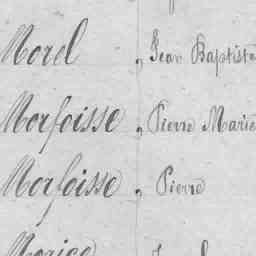 Morel , Jean Baptiste
Morfoisse , Pierre Marie
Morfoisse , Pierre
Morice